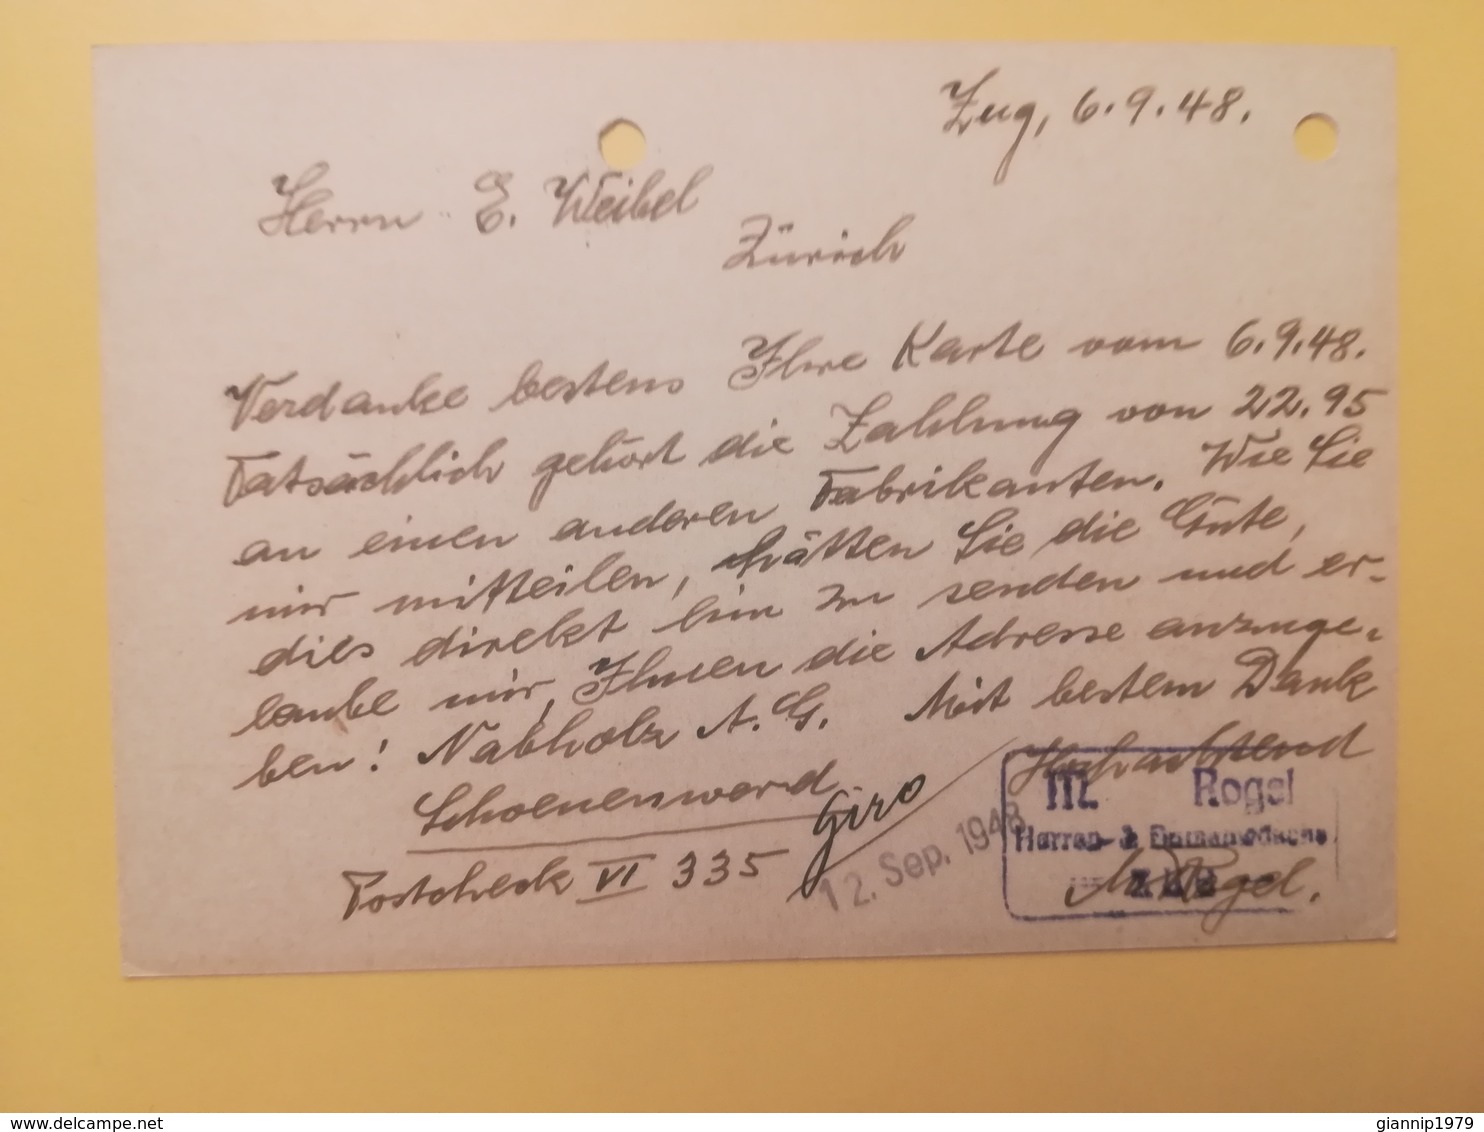 Zug, 6.9.48.
Herrn E. Weibel
Zürich
Verdanke bestens Ihre Karte vom 6.9.48.
Tatsächlich gehört die Zahlung von 22.95
an einen anderen Fabrikanten. Wie Sie
mir mitteilen, hätten Sie die Güte,
dies direkt hin zu senden und er-
laube mir, Ihnen die Adresse anzuge-
ben! Nabholz A.G. Mit bestem Dank
Schoenenwerd Hochachtend
Giro
Postcheck VI 335
12. Sep. 1948
M. Rogel
Herren- & Damenwäsche
ZUG
M Rogel.
delcampe.net
giannip1979